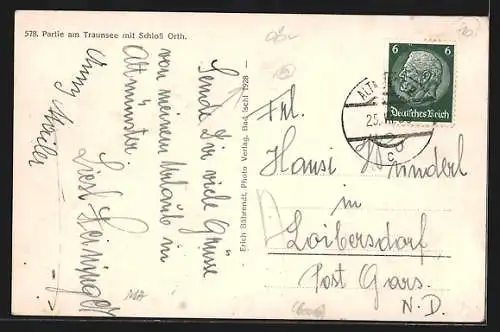 578. Partie am Traunsee mit Schloß Orth.
Sende Dir viele Grüsse
von meinem Urlaub in
Altmünster.
Liesl
Anny
Erich Bährendt, Photo Verlag, Bad Ischl 1928
6 6
Deutsches Reich
ALTM
25. VII.
c
Frl.
Hansi Wunderl
in
Loibersdorf
Post Gars
N. D.